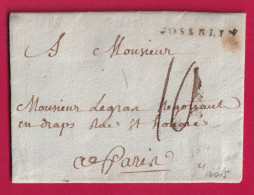 JOSSELIN
A Monsieur
Monsieur Legran Negotiant
en draps Rue St honoré
a Paris